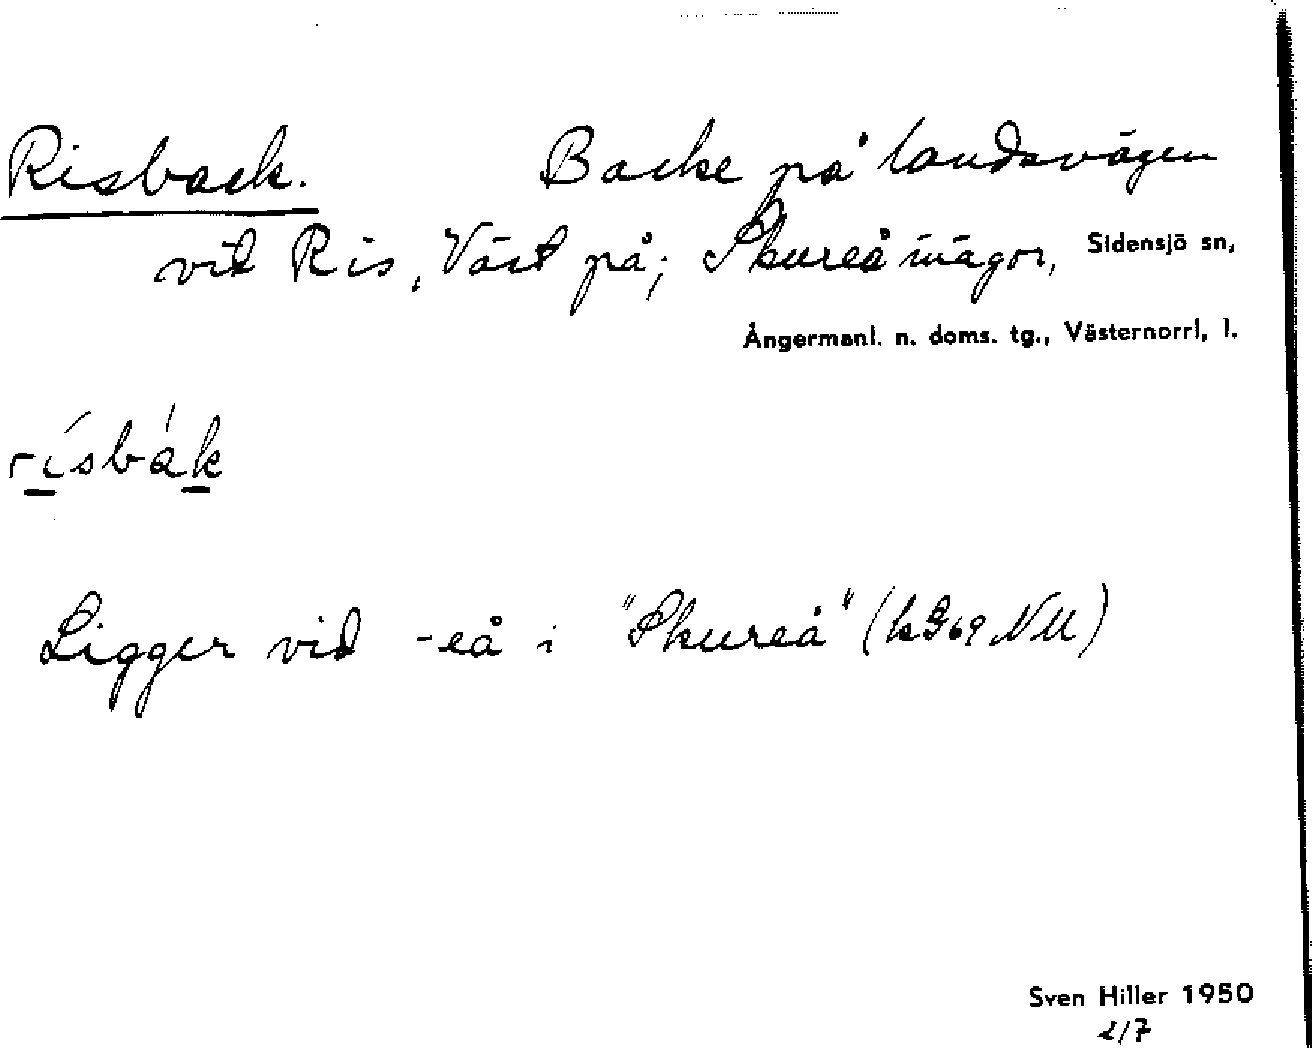 Risback. Backe på landsvägen
vid Ris, Väst på; Skureå ägor, Sidensjö sn,
Ångermanl. n. doms. tg., Västernorrl. l.
rísbák
Ligger vid -eå i "Skureå" (kG69 NU)
Sven Hiller 1950
2/7